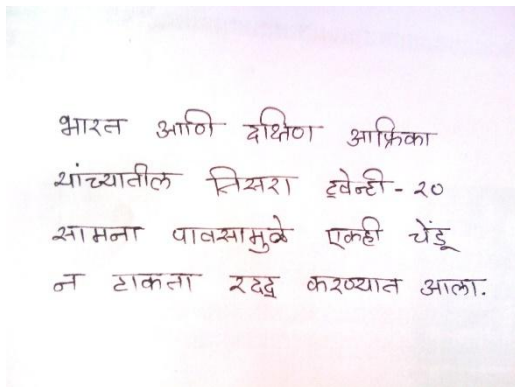 भारत आणि दक्षिण आफ्रिका
यांच्यातील तिसरा ट्वेन्टी-२०
सामना पावसामुळे एकही चेंडू
न टाकता रदद्द करण्यात आला.